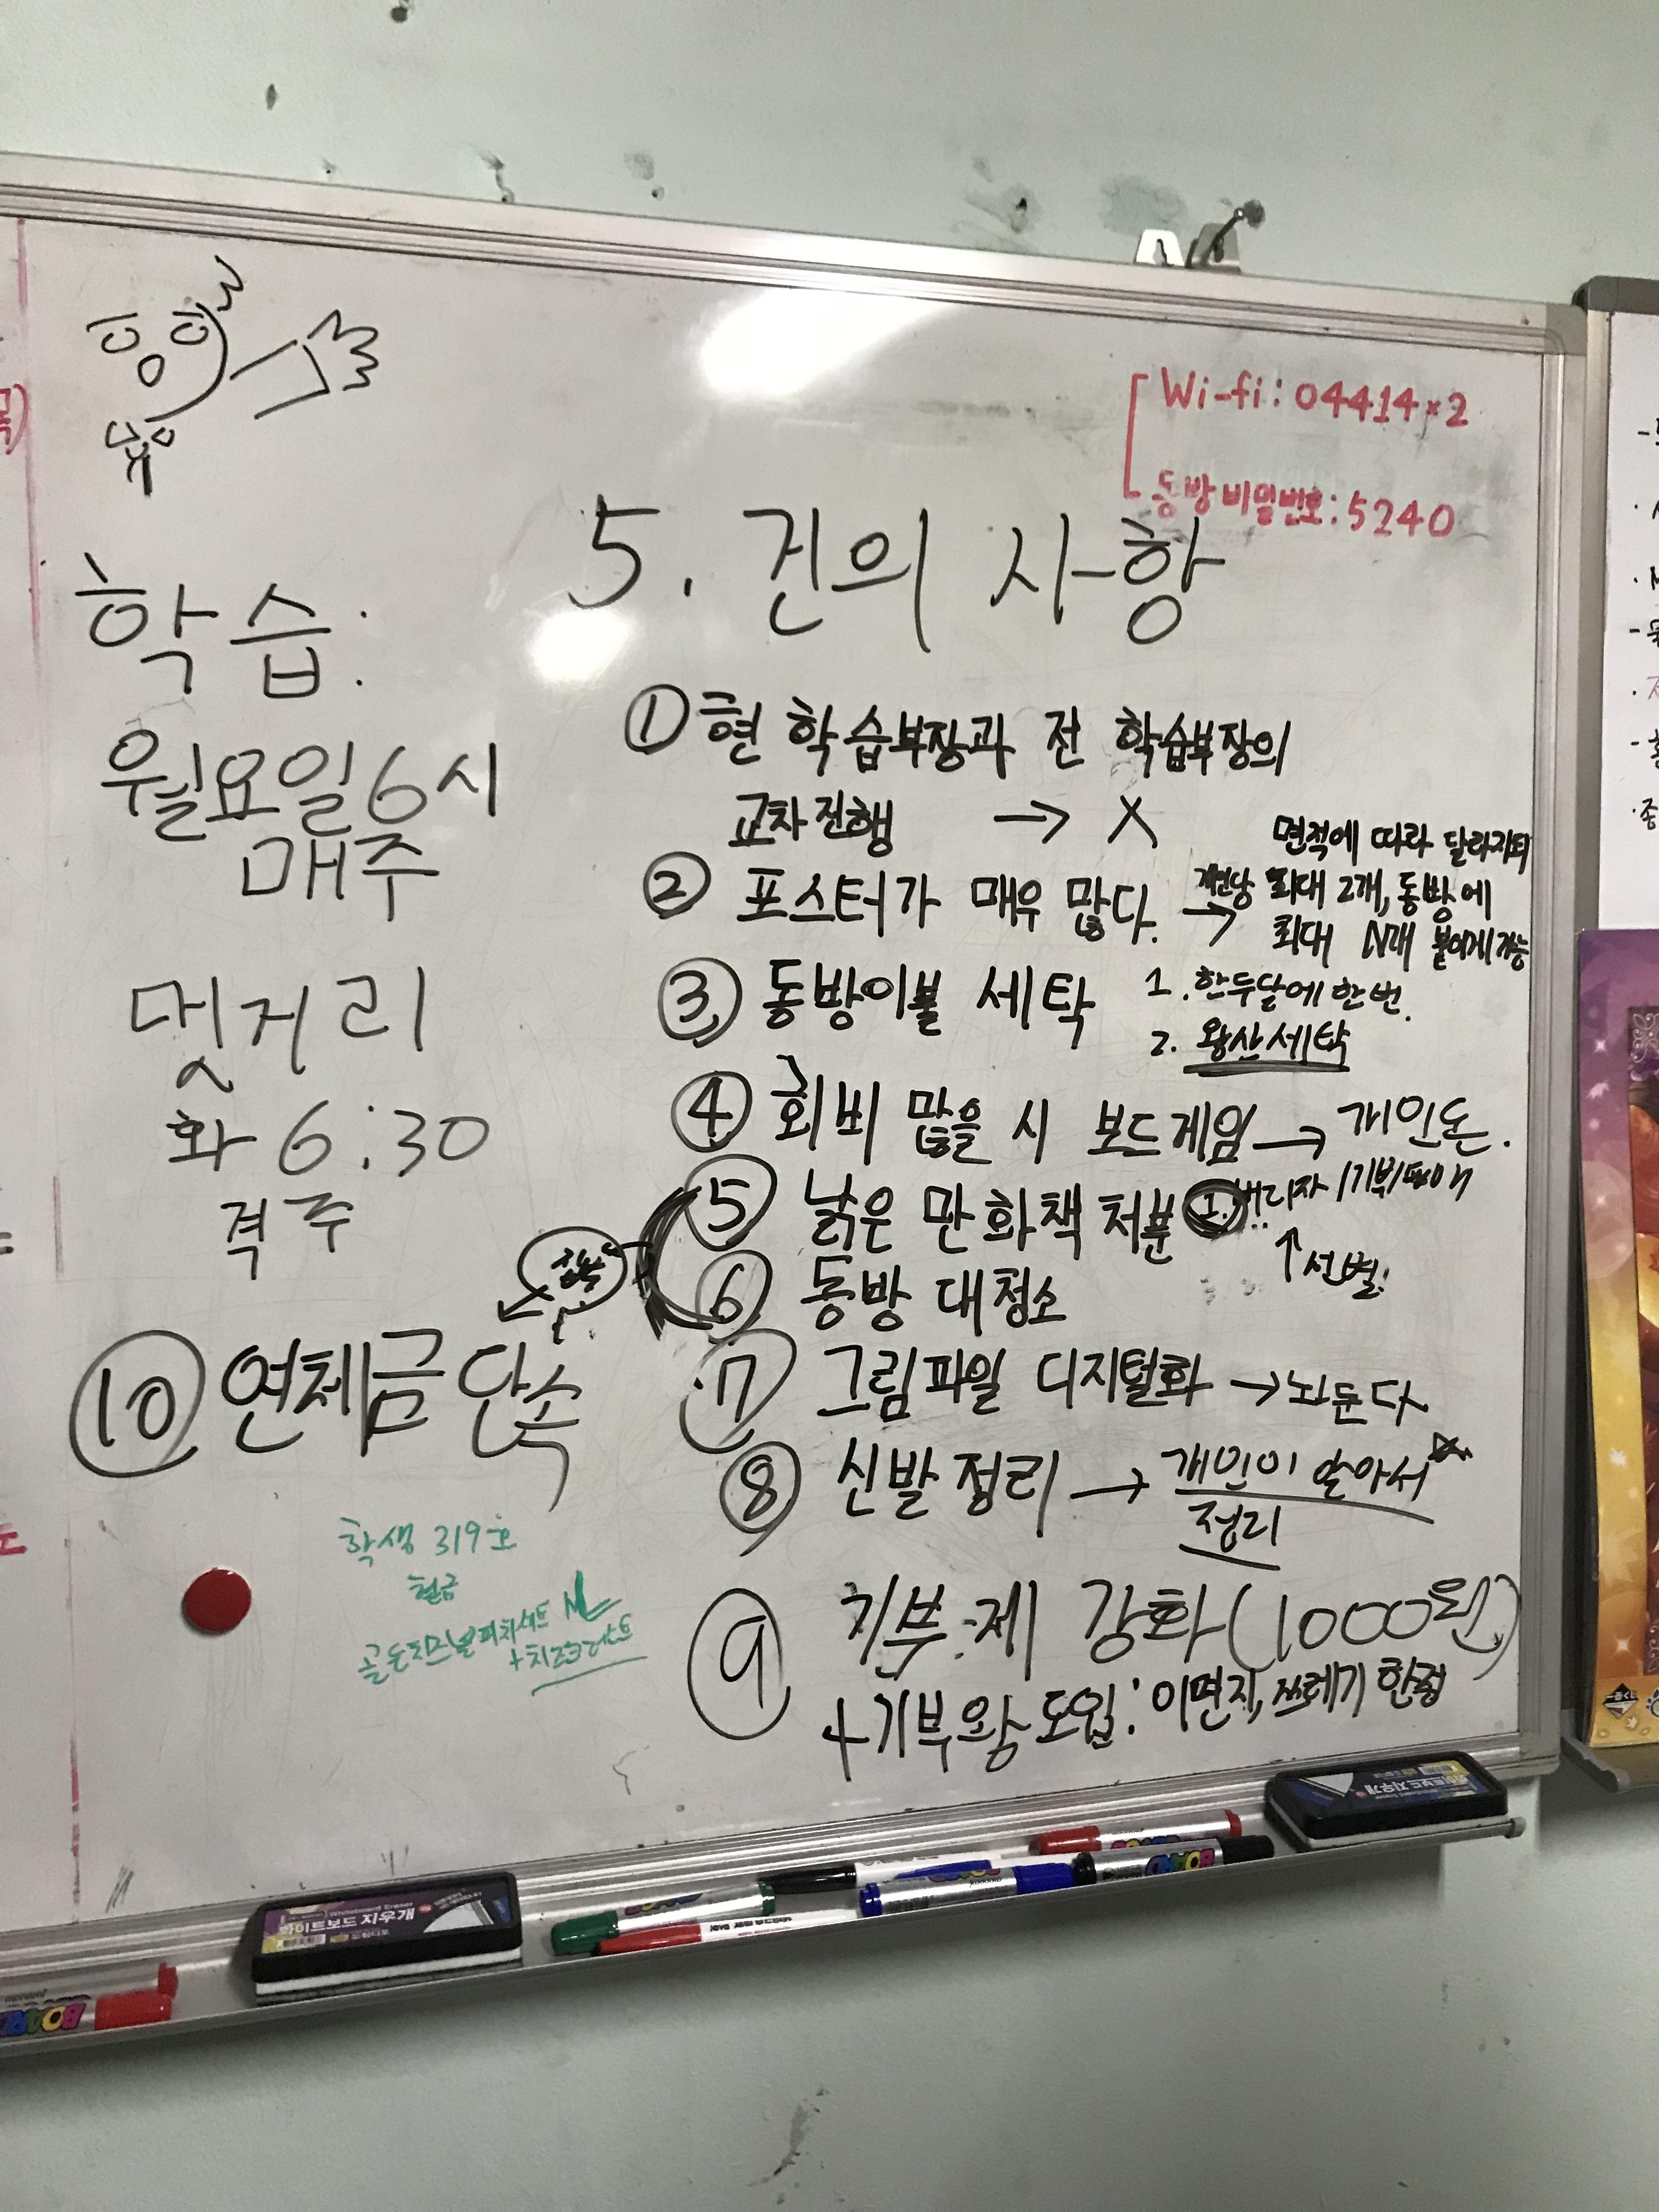 Wi-fi: 04414×2
동방비밀번호: 5240
5. 건의 사항
① 현 학습부장과 전 학습부장의
교차진행 → X
② 포스터가 매우 많다. →
면적에 따라 달라지되
최대 2개, 동방에
최대 N개 붙이게 가능
③ 동방이불 세탁
1. 한두달에 한 번.
2. 왕산세탁
④ 회비 많을 시 보드게임 → 개인돈.
⑤ 낡은 만화책 처분 1. 버리자 / 기부/판매
↑ 선별!
⑥ 동방 대청소
⑦ 그림파일 디지털화 → 놔둔다
⑧ 신발 정리 → 개인이 알아서
정리
⑨ 기부제 강화 (1000원)
+ 기부왕 도입: 이면지, 쓰레기 한정
학습:
월요일 6시
매주
먼지리
화 6:30
격주
⑩ 연체금 단속
학생 319호
현금
+ 치즈크러스트
화이트보드 지우개
BOARD